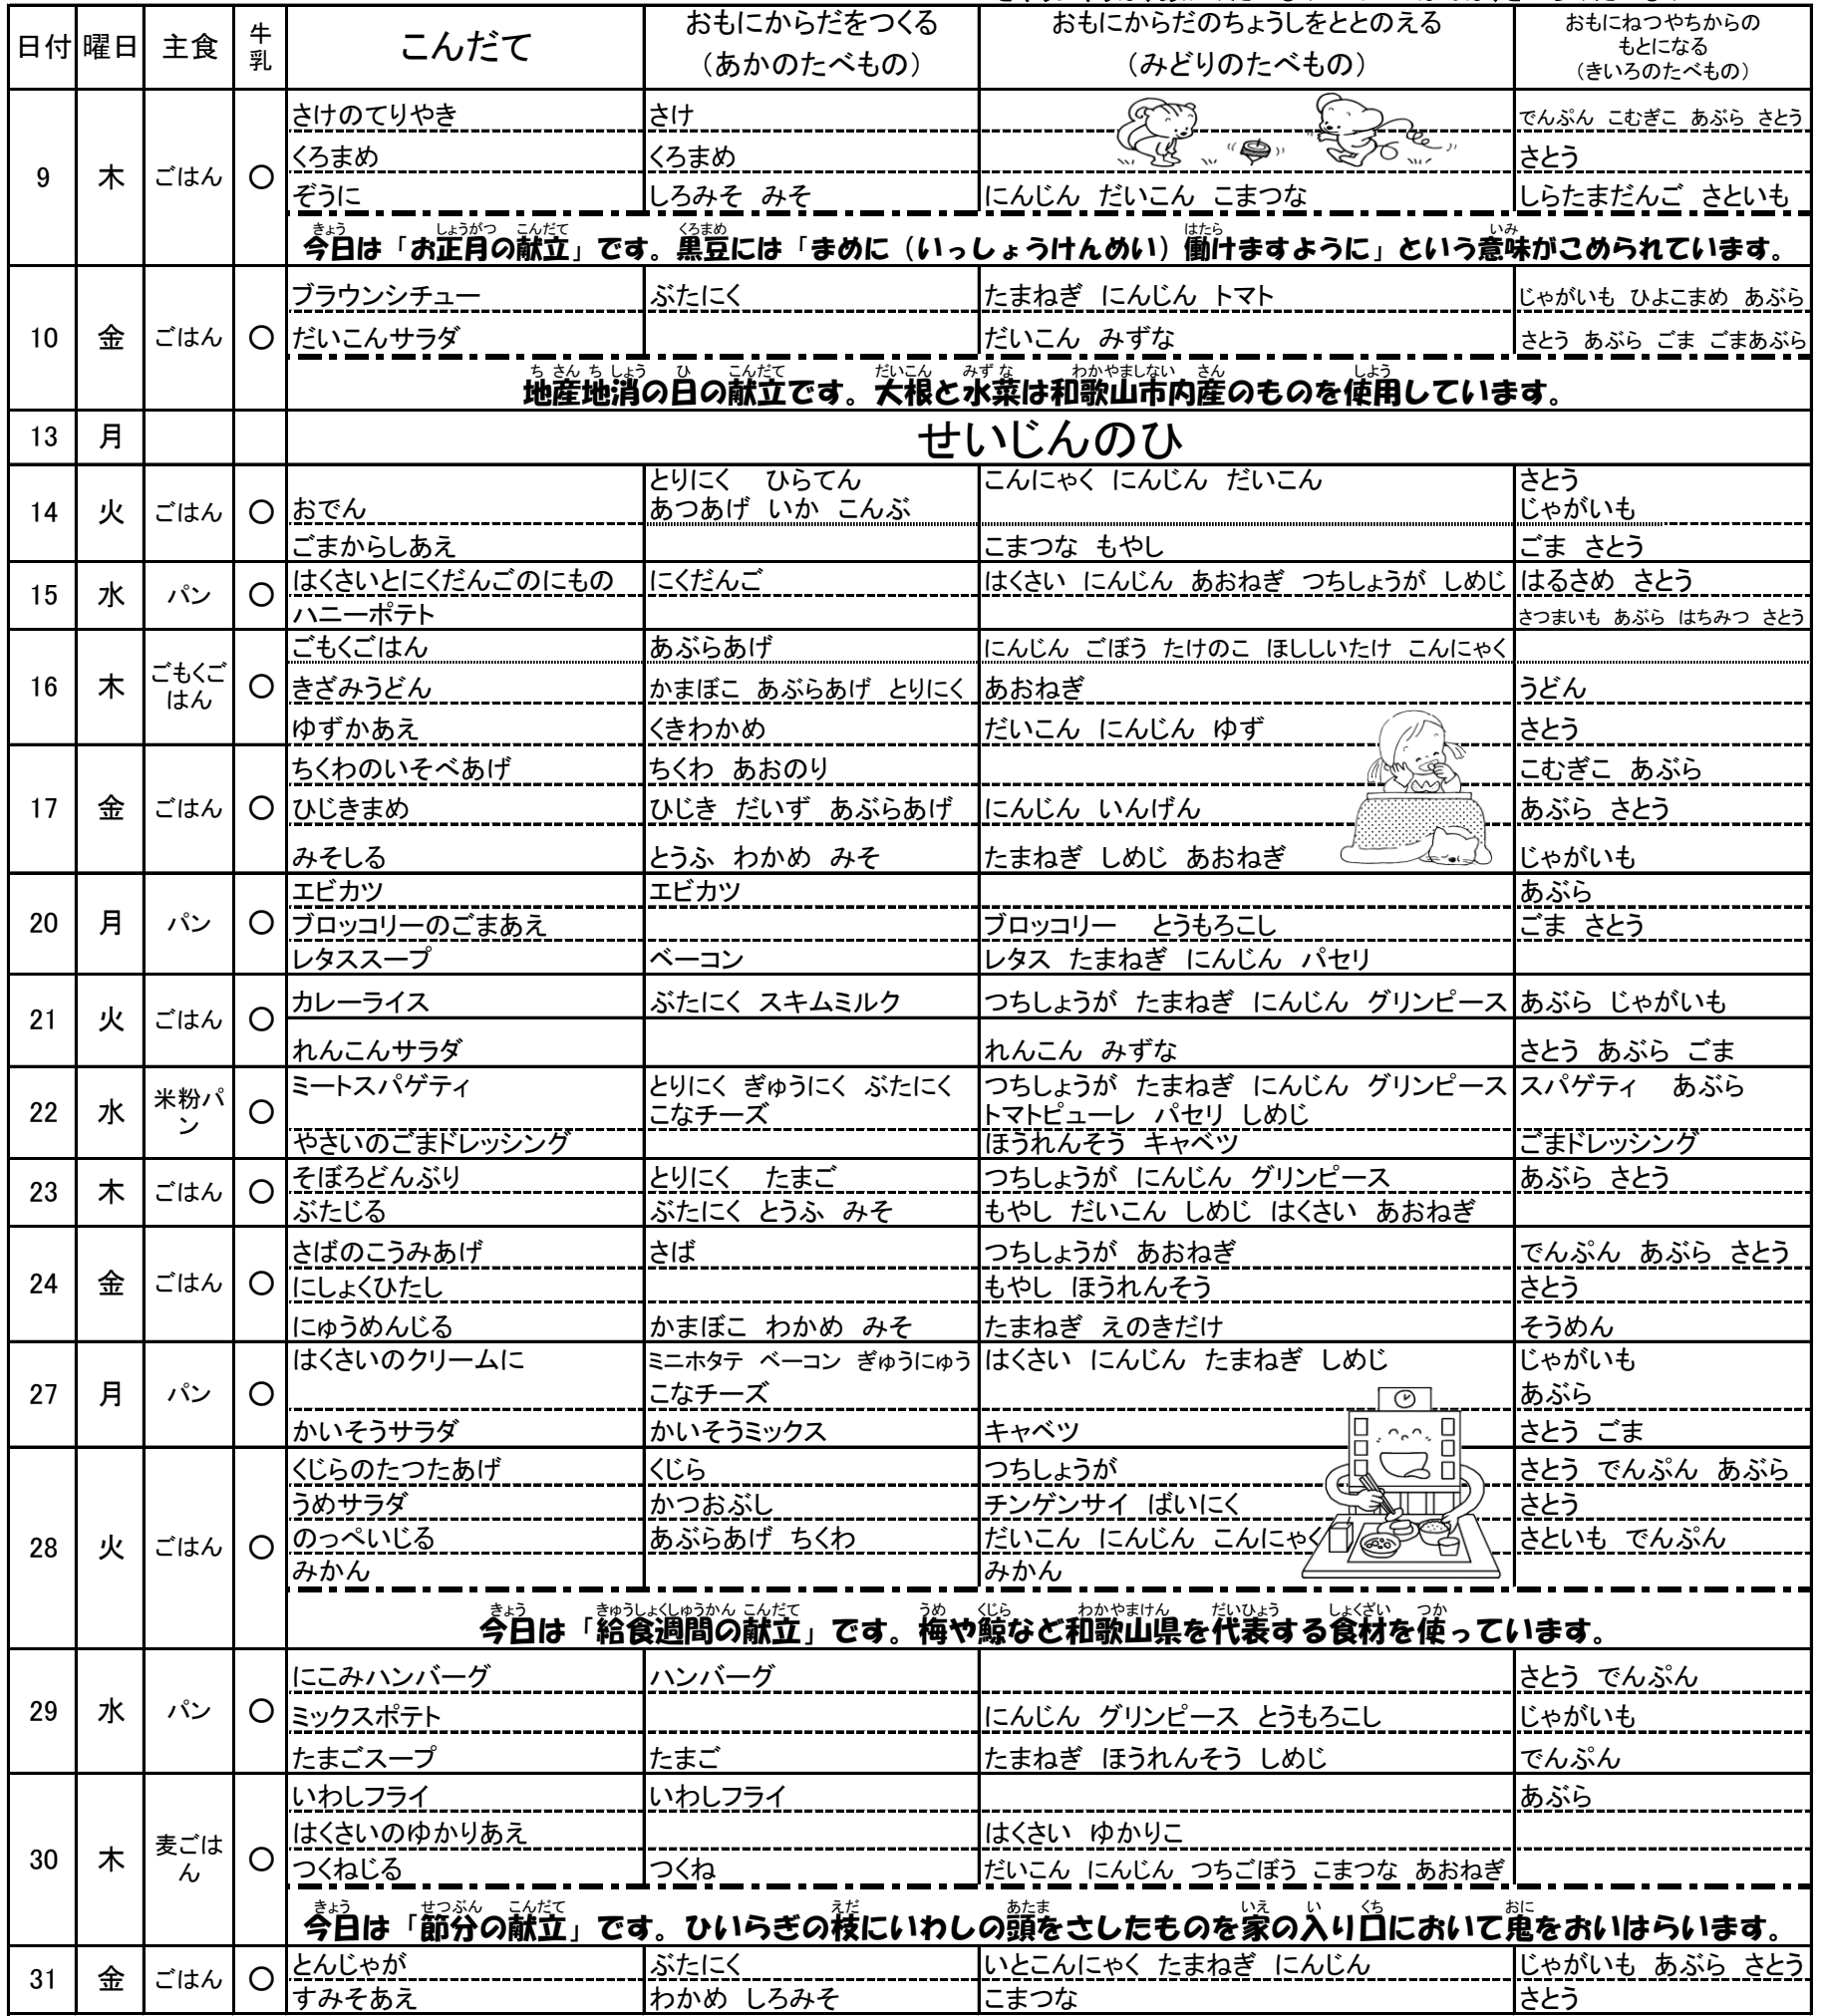 日付 曜日 主食 牛乳 こんだて おもにからだをつくる（あかのたべもの） おもにからだのちょうしをととのえる（みどりのたべもの） おもにねつやちからのもとになる（きいろのたべもの）
9 木 ごはん ○
さけのてりやき さけ でんぷん こむぎこ あぶら さとう
くろまめ くろまめ さとう
ぞうに しろみそ みそ にんじん だいこん こまつな しらたまだんご さといも
今日は「お正月の献立」です。黒豆には「まめに（いっしょうけんめい）働けますように」という意味がこめられています。
10 金 ごはん ○
ブラウンシチュー ぶたにく たまねぎ にんじん トマト じゃがいも ひよこまめ あぶら
だいこんサラダ だいこん みずな さとう あぶら ごま ごまあぶら
地産地消の日の献立です。大根と水菜は和歌山市内産のものを使用しています。
13 月 せいじんのひ
14 火 ごはん ○
おでん とりにく ひらてん あつあげ いか こんぶ こんにゃく にんじん だいこん さとう じゃがいも
ごまからしあえ こまつな もやし ごま さとう
15 水 パン ○
はくさいとにくだんごのにもの にくだんご はくさい にんじん あおねぎ つちしょうが しめじ はるさめ さとう
ハニーポテト さつまいも あぶら はちみつ さとう
16 木 ごもくごはん ○
ごもくごはん あぶらあげ にんじん ごぼう たけのこ ほししいたけ こんにゃく
きざみうどん かまぼこ あぶらあげ とりにく あおねぎ うどん
ゆずかあえ くきわかめ だいこん にんじん ゆず さとう
17 金 ごはん ○
ちくわのいそべあげ ちくわ あおのり こむぎこ あぶら
ひじきまめ ひじき だいず あぶらあげ にんじん いんげん あぶら さとう
みそしる とうふ わかめ みそ たまねぎ しめじ あおねぎ じゃがいも
20 月 パン ○
エビカツ エビカツ あぶら
ブロッコリーのごまあえ ブロッコリー とうもろこし ごま さとう
レタススープ ベーコン レタス たまねぎ にんじん パセリ
21 火 ごはん ○
カレーライス ぶたにく スキムミルク つちしょうが たまねぎ にんじん グリンピース あぶら じゃがいも
れんこんサラダ れんこん みずな さとう あぶら ごま
22 水 米粉パン ○
ミートスパゲティ とりにく ぎゅうにく ぶたにく こなチーズ つちしょうが たまねぎ にんじん グリンピース トマトピューレ パセリ しめじ スパゲティ あぶら
やさいのごまドレッシング ほうれんそう キャベツ ごまドレッシング
23 木 ごはん ○
そぼろどんぶり とりにく たまご つちしょうが にんじん グリンピース あぶら さとう
ぶたじる ぶたにく とうふ みそ もやし だいこん しめじ はくさい あおねぎ
24 金 ごはん ○
さばのこうみあげ さば つちしょうが あおねぎ でんぷん あぶら さとう
にしょくひたし もやし ほうれんそう さとう
にゅうめんじる かまぼこ わかめ みそ たまねぎ えのきだけ そうめん
27 月 パン ○
はくさいのクリームに ミニホタテ ベーコン ぎゅうにゅう こなチーズ はくさい にんじん たまねぎ しめじ じゃがいも あぶら
かいそうサラダ かいそうミックス キャベツ さとう ごま
28 火 ごはん ○
くじらのたつたあげ くじら つちしょうが さとう でんぷん あぶら
うめサラダ かつおぶし チンゲンサイ ばいにく さとう
のっぺいじる あぶらあげ ちくわ だいこん にんじん こんにゃく さといも でんぷん
みかん みかん
今日は「給食週間の献立」です。梅や鯨など和歌山県を代表する食材を使っています。
29 水 パン ○
にこみハンバーグ ハンバーグ さとう でんぷん
ミックスポテト にんじん グリンピース とうもろこし じゃがいも
たまごスープ たまご たまねぎ ほうれんそう しめじ でんぷん
30 木 麦ごはん ○
いわしフライ いわしフライ あぶら
はくさいのゆかりあえ はくさい ゆかりこ
つくねじる つくね だいこん にんじん つちごぼう こまつな あおねぎ
今日は「節分の献立」です。ひいらぎの枝にいわしの頭をさしたものを家の入り口において鬼をおいはらいます。
31 金 ごはん ○
とんじゃが ぶたにく いとこんにゃく たまねぎ にんじん じゃがいも あぶら さとう
すみそあえ わかめ しろみそ こまつな さとう